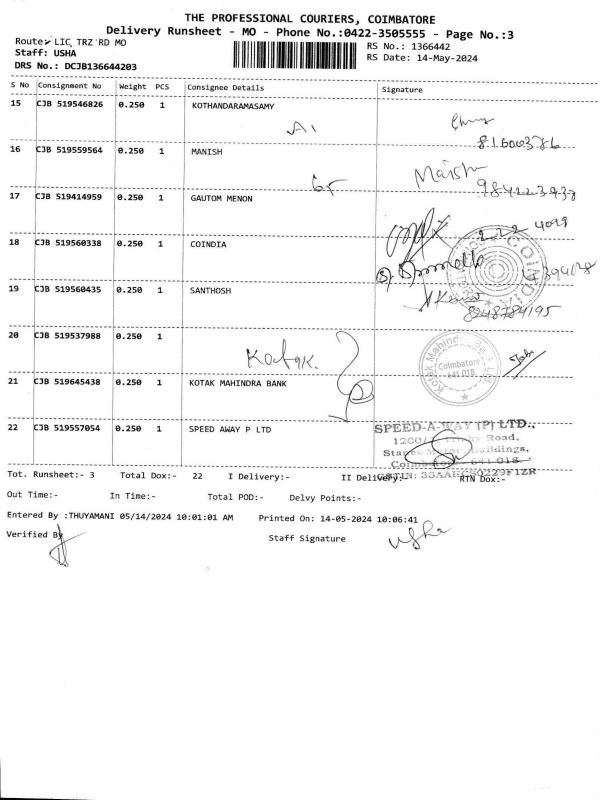 THE PROFESSIONAL COURIERS, COIMBATORE
Delivery Runsheet - MO - Phone No.:0422-3505555 - Page No.:3
Route:- LIC, TRZ RD MO
Staff: USHA
DRS No.: DCJB136644203
RS No.: 1366442
RS Date: 14-May-2024
S No Consignment No Weight PCS Consignee Details Signature
15 CJB 519546826 0.250 1 KOTHANDARAMASAMY
A1
16 CJB 519559564 0.250 1 MANISH
17 CJB 519414959 0.250 1 GAUTOM MENON
18 CJB 519560338 0.250 1 COINDIA
COINDIA
19 CJB 519560435 0.250 1 SANTHOSH
8248784195
20 CJB 519537988 0.250 1
Kotak.
Kotak Mahindra Ba Ltd
Coimbatore
641 018
21 CJB 519645438 0.250 1 KOTAK MAHINDRA BANK
22 CJB 519557054 0.250 1 SPEED AWAY P LTD
SPEED-A-WAY (P) LTD.,
Road,
Buildings,
641 018
GSTIN: 33AAHCS0229F1ZR
Tot. Runsheet:- 3 Total Dox:- 22 I Delivery:- II Delivery:- RTN Dox:-
Out Time:- In Time:- Total POD:- Delvy Points:-
Entered By :THUYAMANI 05/14/2024 10:01:01 AM Printed On: 14-05-2024 10:06:41
Verified By
Staff Signature
Usha